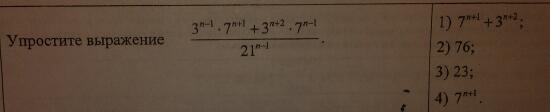 Упростите выражение (3^{n-1} · 7^{n+1} + 3^{n+2} · 7^{n-1}) / 21^{n-1}.
1) 7^{n+1} + 3^{n+2};
2) 76;
3) 23;
4) 7^{n+1}.